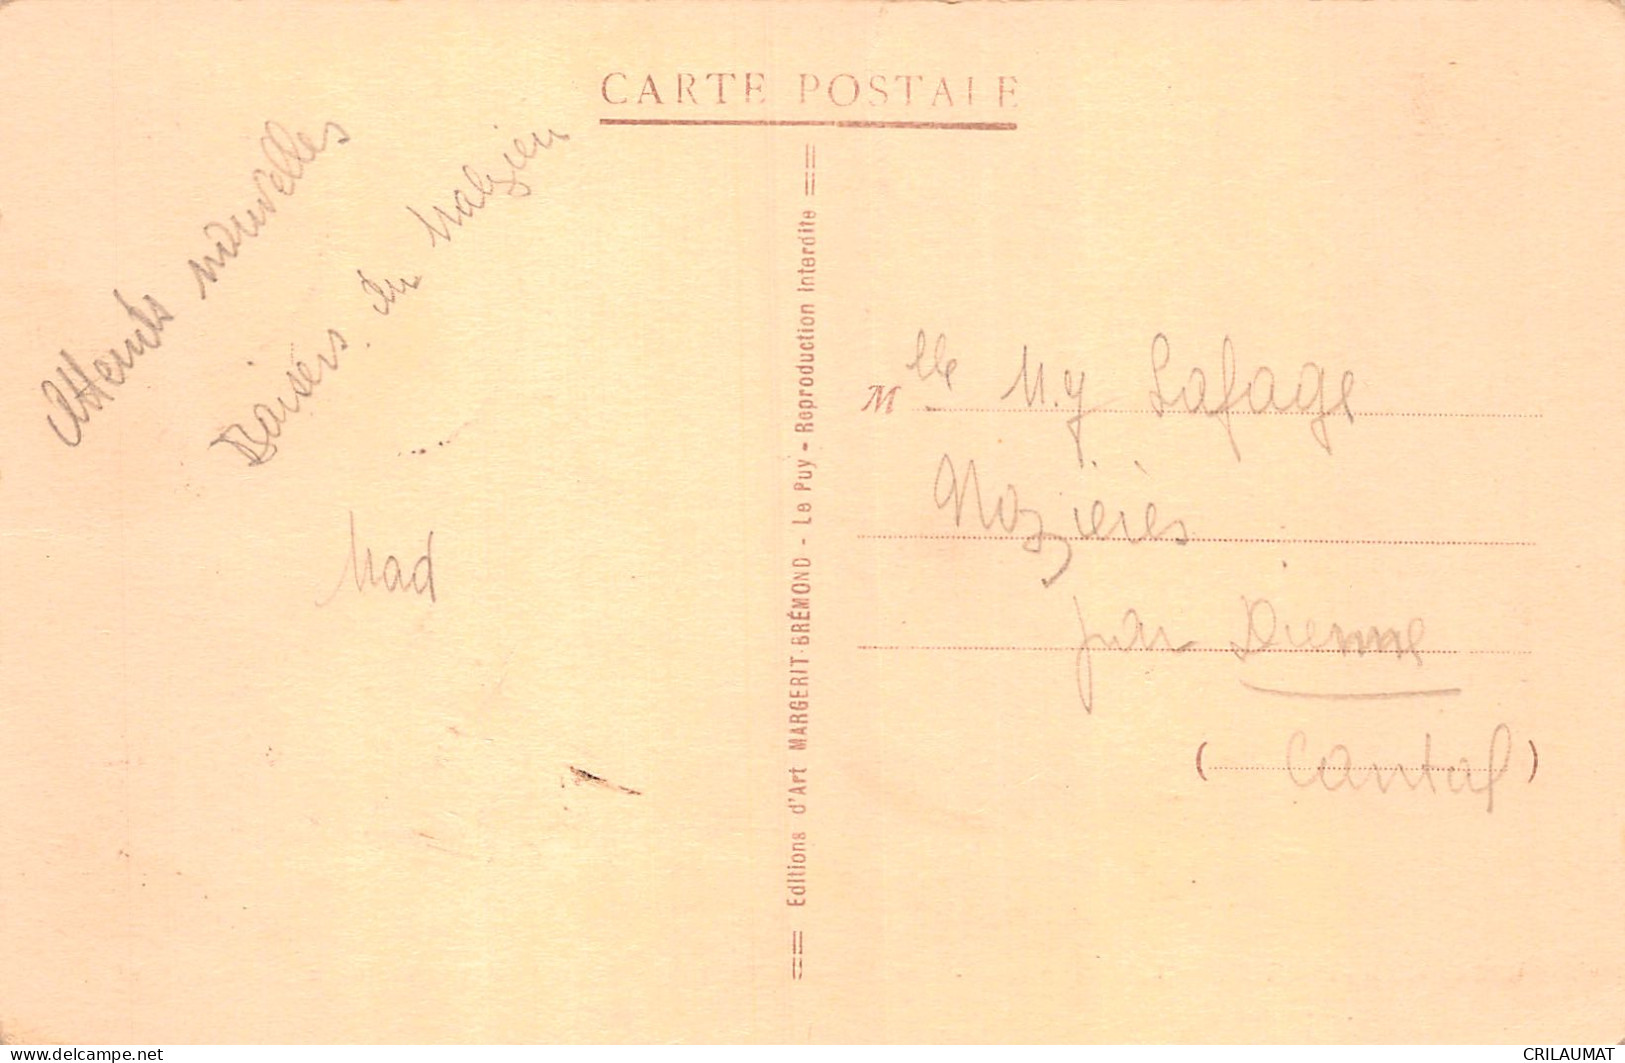 CARTE POSTALE
Attends nouvelles
Baisers du Malzieu
Mad
Editions d'Art MARGERIT-BRÉMOND - Le Puy - Reproduction Interdite
Mlle M.y Lafage
Nozières
par Dienne
( Cantal )
www.delcampe.net
CRILAUMAT